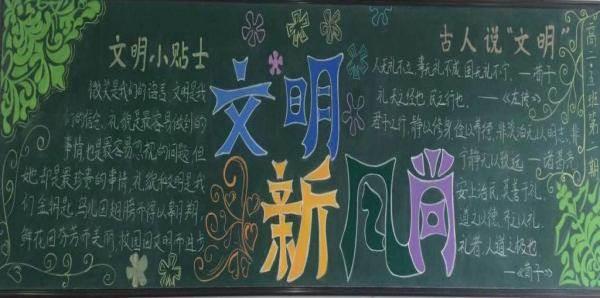 文明小贴士
微笑是我们的语言,文明是我
们的信念。礼貌是最容易做到的
事情,也是最容易忽视的问题,但
她却是最珍贵的事情,礼貌和文明是我
鲜花因芬芳而美丽,校园因文明而进步
文明
新风尚
古人说“文明”
人无礼不立,事无礼不成,国无礼不宁。——荀子
礼,天之经也,民之行也。——《左传》
君子之行,静以修身,俭以养德,非淡泊无以明志,非
宁静无以致远。——诸葛亮
安上治民,莫善于礼
礼者,人道之极也
——《荀子》